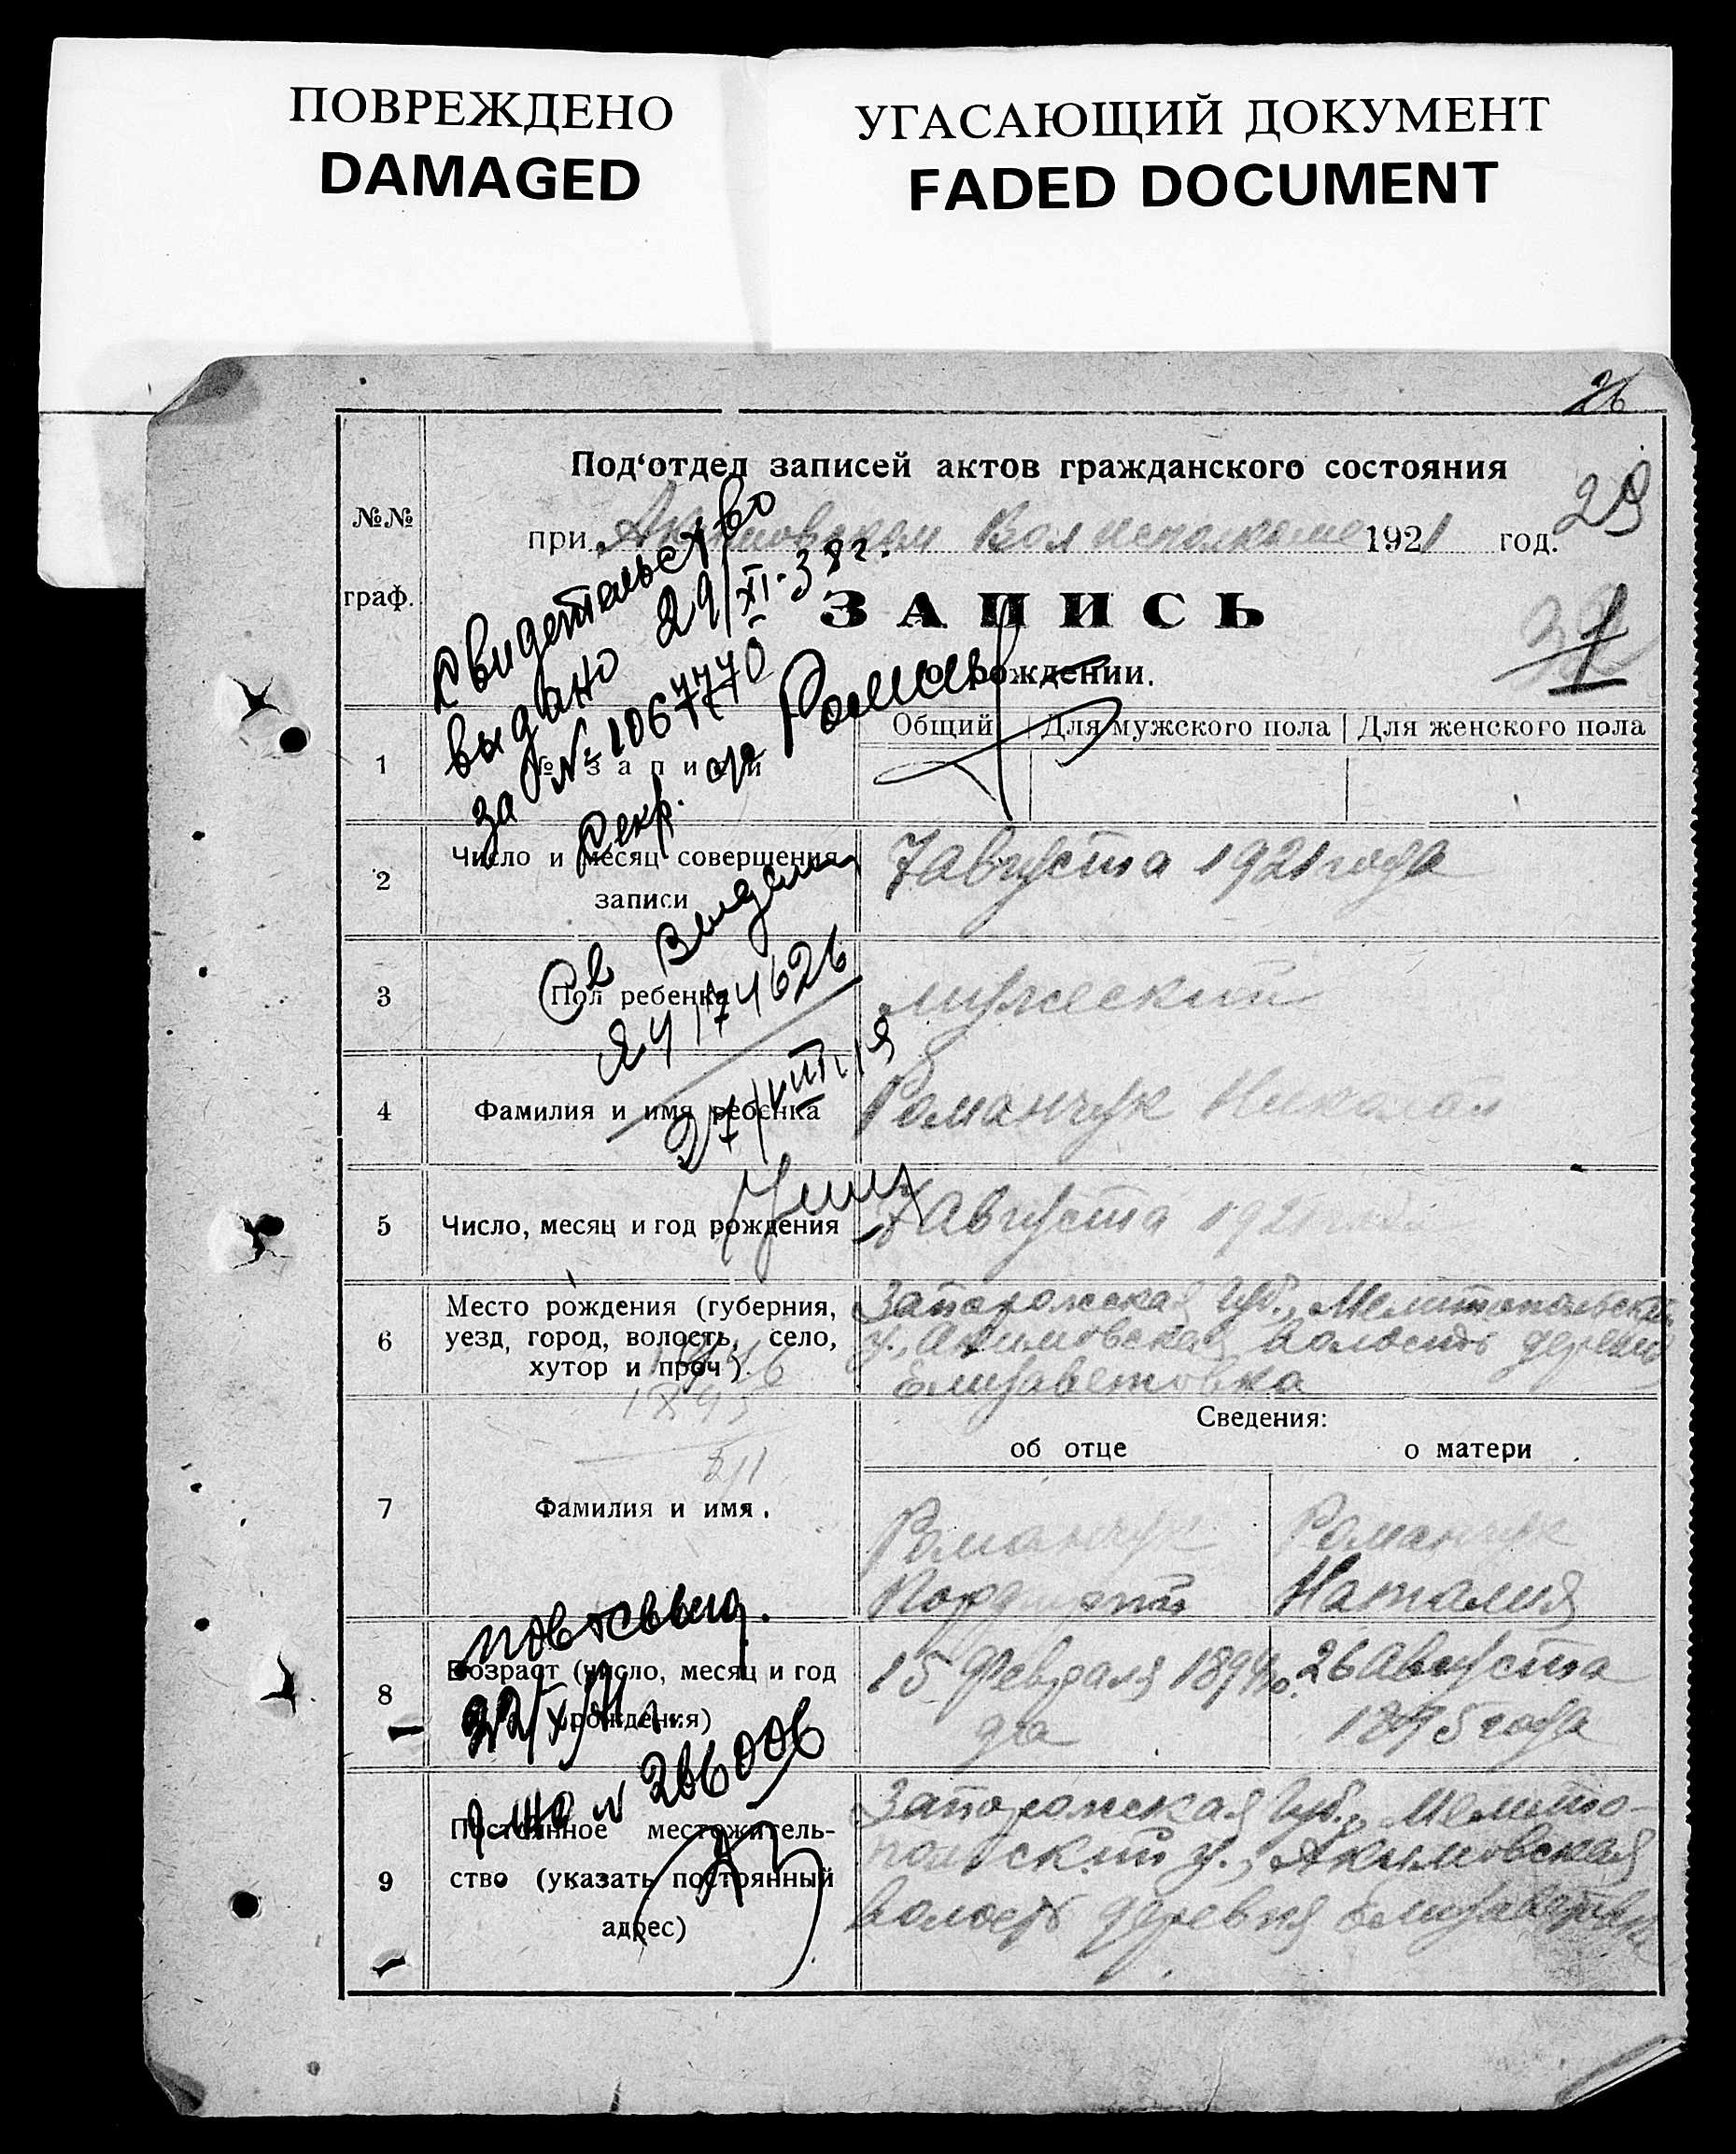 ПОВРЕЖДЕНО
DAMAGED
УГАСАЮЩИЙ ДОКУМЕНТ
FADED DOCUMENT
26
Под‘отдел записей актов гражданского состояния
при Акимовском Вол исполкоме 1921 год.
29
ЗАПИСЬ
о рождении.
1
№№
граф.
Свидетельство
выдано 29/XI-38г.
за № 1067770
Секр.
Общий | Для мужского пола | Для женского пола
1
№ записи
2
Число и месяц совершения
записи
7 августа 1921 года
Св выдан
ЯЧ 174626
27/VIII
3
Пол ребенка
мужеский
4
Фамилия и имя ребенка
Романчук Николай
5
Число, месяц и год рождения
7 Августа 1921 года
6
Место рождения (губерния,
уезд, город, волость, село,
хутор и проч.)
Запорожская Губ., Мелитопольский
у., Акимовская волость деревня
Елизаветовка
Сведения:
об отце
о матери
7
Фамилия и имя.
Романчук
Порфирий
Романчук
Наталия
8
Возраст (число, месяц и год
рождения)
15 Февраля 1894 го
да
26 Августа
1895 года
9
Постоянное местожитель-
ство (указать постоянный
адрес)
Запорожская Губ., Мелито-
польский у., Акимовская
волость деревня Елизаветовка